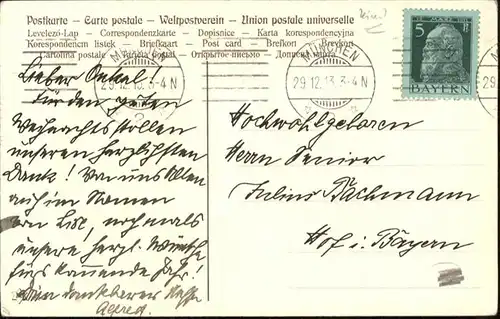 Postkarte – Carte postale – Weltpostverein – Union postale universelle
Levelező-Lap — Correspondenzkarte — Dopisnice — Karta korespondencyjna
Korespondencm listek — Briefkaart — Post card — Brefkort — Brevkort
Cartolina postale — Открытое письмо — Дописна
MÜNCHEN
29.12.13. 3-4 N
MÜNCHEN
29.12.13. 3-4 N
5
BAYERN
Lieber Onkel!
Für den guten
Weihnachtsstollen
unseren herzlichsten
Dank! Von uns Allen
auch im Namen
von Lise, nochmals
unsere herzl. Wünsche
fürs kommende Jahr!
Dein dankbarer Neffe
Alfred.
Hochwohlgeboren
Herrn Senior
Julius Bachmann
Hof i. Bayern